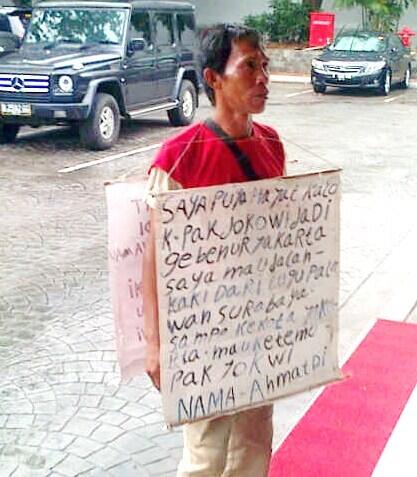 SAYA PUYA Hajat KALO
K-PAK JOKOWI JADI
gebenur JAKARTA
saya mau JALAN-
KAKI DARI Lugu PALA
WAN SURABAYA.
SAMPE KEKOTA JAKA
RTA- mau ketemu
PAK JOK WI
NAMA- Ahmat DI